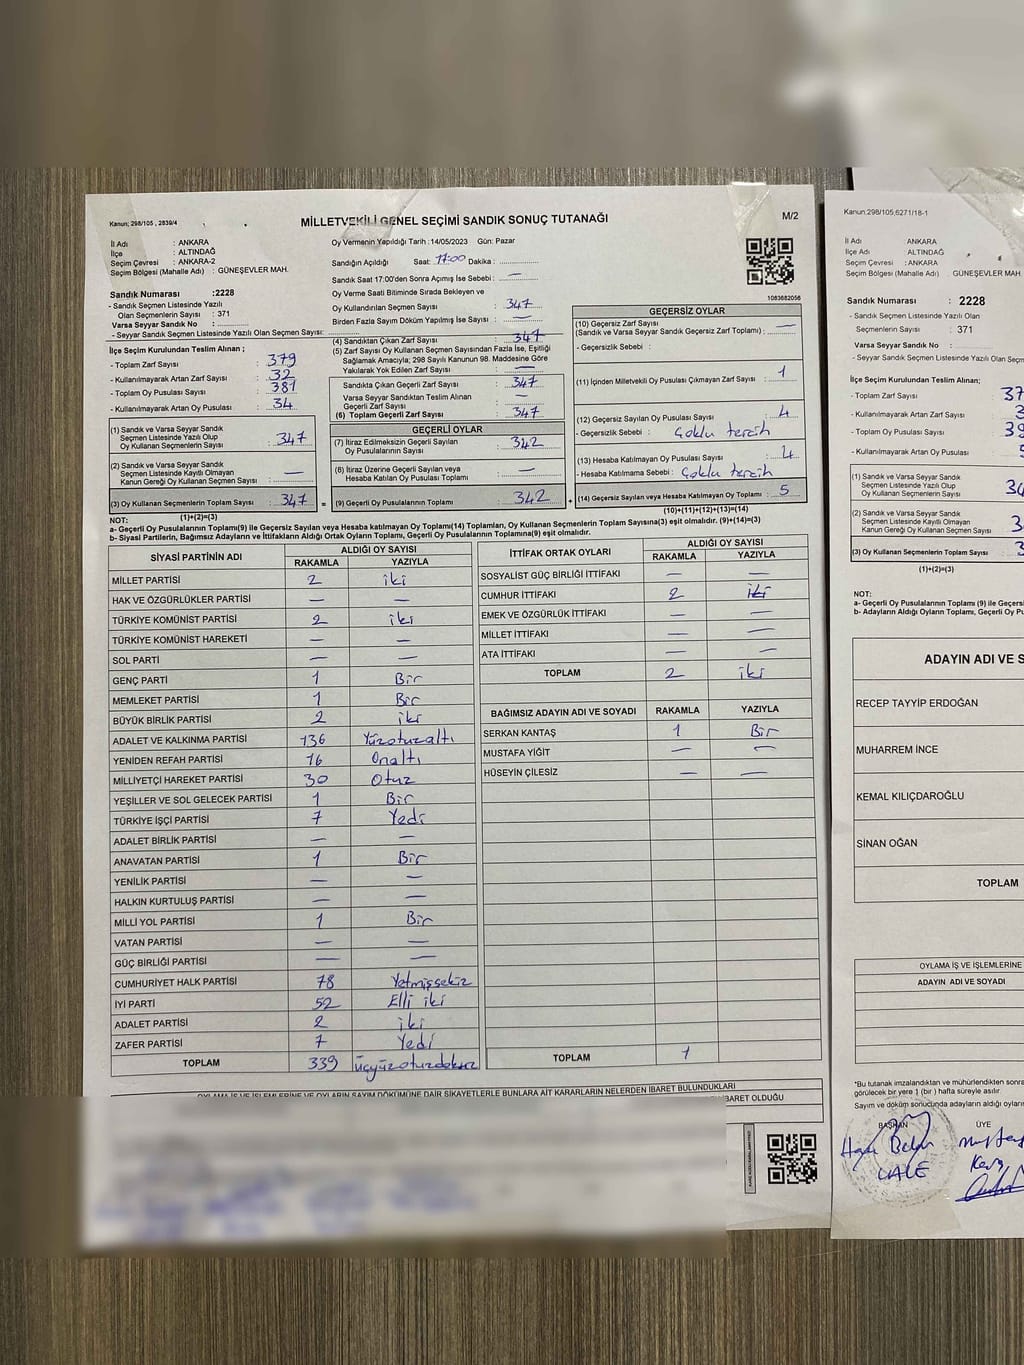 Kanun; 298/105 , 2839/4
MİLLETVEKİLİ GENEL SEÇİMİ SANDIK SONUÇ TUTANAĞI
M/2
İl Adı : ANKARA
İlçe : ALTINDAĞ
Seçim Çevresi : ANKARA-2
Seçim Bölgesi (Mahalle Adı) : GÜNEŞEVLER MAH.
Sandık Numarası :2228
- Sandık Seçmen Listesinde Yazılı
Olan Seçmenlerin Sayısı : 371
Varsa Seyyar Sandık No :
- Seyyar Sandık Seçmen Listesinde Yazılı Olan Seçmen Sayısı:
İlçe Seçim Kurulundan Teslim Alınan ;
- Toplam Zarf Sayısı : 379
- Kullanılmayarak Artan Zarf Sayısı : 32
- Toplam Oy Pusulası Sayısı : 381
- Kullanılmayarak Artan Oy Pusulası : 34
(1) Sandık ve Varsa Seyyar Sandık
Seçmen Listesinde Yazılı Olup
Oy Kullanan Seçmenlerin Sayısı : 347
(2) Sandık ve Varsa Seyyar Sandık
Seçmen Listesinde Kayıtlı Olmayan
Kanun Gereği Oy Kullanan Seçmen Sayısı : —
(3) Oy Kullanan Seçmenlerin Toplam Sayısı : 347 =
(1)+(2)=(3)
Oy Vermenin Yapıldığı Tarih :14/05/2023 Gün: Pazar
Sandığın Açıldığı Saat: 17:00 Dakika :
Sandık Saat 17:00'den Sonra Açımış İse Sebebi : —
Oy Verme Saati Bitiminde Sırada Bekleyen ve
Oy Kullandırılan Seçmen Sayısı : 347
Birden Fazla Sayım Döküm Yapılmış İse Sayısı : —
(4) Sandıktan Çıkan Zarf Sayısı : 347
(5) Zarf Sayısı Oy Kullanan Seçmen Sayısından Fazla İse, Eşitliği
Sağlamak Amacıyla; 298 Sayılı Kanunun 98. Maddesine Göre
Yakılarak Yok Edilen Zarf Sayısı : —
Sandıkta Çıkan Geçerli Zarf Sayısı : 347
Varsa Seyyar Sandıktan Teslim Alınan
Geçerli Zarf Sayısı : —
(6) Toplam Geçerli Zarf Sayısı : 347
GEÇERLİ OYLAR
(7) İtiraz Edilmeksizin Geçerli Sayılan
Oy Pusulalarının Sayısı : 342
(8) İtiraz Üzerine Geçerli Sayılan veya
Hesaba Katılan Oy Pusulası Toplamı : —
(9) Geçerli Oy Pusulalarının Toplamı : 342 +
1083682056
GEÇERSİZ OYLAR
(10) Geçersiz Zarf Sayısı
(Sandık ve Varsa Seyyar Sandık Geçersiz Zarf Toplamı) : —
- Geçersizlik Sebebi :
(11) İçinden Milletvekili Oy Pusulası Çıkmayan Zarf Sayısı : 1
(12) Geçersiz Sayılan Oy Pusulası Sayısı : 4
- Geçersizlik Sebebi : Çoklu tercih
(13) Hesaba Katılmayan Oy Pusulası Sayısı : 4
- Hesaba Katılmama Sebebi : Çoklu tercih
(14) Geçersiz Sayılan veya Hesaba Katılmayan Oy Toplamı : 5
(10)+(11)+(12)+(13)=(14)
NOT:
a- Geçerli Oy Pusulalarının Toplamı(9) ile Geçersiz Sayılan veya Hesaba katılmayan Oy Toplamı(14) Toplamları, Oy Kullanan Seçmenlerin Toplam Sayısına(3) eşit olmalıdır. (9)+(14)=(3)
b- Siyasi Partilerin, Bağımsız Adayların ve İttifakların Aldığı Ortak Oyların Toplamı, Geçerli Oy Pusulalarının Toplamına(9) eşit olmalıdır.
SİYASİ PARTİNİN ADI ALDIĞI OY SAYISI
RAKAMLA YAZIYLA
MİLLET PARTİSİ 2 iki
HAK VE ÖZGÜRLÜKLER PARTİSİ — —
TÜRKİYE KOMÜNİST PARTİSİ 2 iki
TÜRKİYE KOMÜNİST HAREKETİ — —
SOL PARTİ — —
GENÇ PARTİ 1 Bir
MEMLEKET PARTİSİ 1 Bir
BÜYÜK BİRLİK PARTİSİ 2 iki
ADALET VE KALKINMA PARTİSİ 136 Yüzotuzaltı
YENİDEN REFAH PARTİSİ 16 Onaltı
MİLLİYETÇİ HAREKET PARTİSİ 30 Otuz
YEŞİLLER VE SOL GELECEK PARTİSİ 1 Bir
TÜRKİYE İŞÇİ PARTİSİ 7 Yedi
ADALET BİRLİK PARTİSİ — —
ANAVATAN PARTİSİ 1 Bir
YENİLİK PARTİSİ — —
HALKIN KURTULUŞ PARTİSİ — —
MİLLİ YOL PARTİSİ 1 Bir
VATAN PARTİSİ — —
GÜÇ BİRLİĞİ PARTİSİ — —
CUMHURİYET HALK PARTİSİ 78 Yetmişsekiz
İYİ PARTİ 52 Elli iki
ADALET PARTİSİ 2 iki
ZAFER PARTİSİ 7 Yedi
TOPLAM 339
İTTİFAK ORTAK OYLARI ALDIĞI OY SAYISI
RAKAMLA YAZIYLA
SOSYALİST GÜÇ BİRLİĞİ İTTİFAKI — —
CUMHUR İTTİFAKI 2 iki
EMEK VE ÖZGÜRLÜK İTTİFAKI — —
MİLLET İTTİFAKI — —
ATA İTTİFAKI — —
TOPLAM 2 iki
BAĞIMSIZ ADAYIN ADI VE SOYADI RAKAMLA YAZIYLA
SERKAN KANTAŞ 1 Bir
MUSTAFA YİĞİT — —
HÜSEYİN ÇİLESİZ — —
TOPLAM 1
OYLAMA İŞ VE İŞLEMLERİNE VE OYLARIN SAYIM DÖKÜMÜNE DAİR ŞİKAYETLERLE BUNLARA AİT KARARLARIN NELERDEN İBARET BULUNDUKLARI
İBARET OLDUĞU
Kanun:298/105,6271/18-1
İl Adı : ANKARA
İlçe Adı : ALTINDAĞ
Seçim Çevresi : ANKARA-2
Seçim Bölgesi (Mahalle Adı) GÜNEŞEVLER MAH.
Sandık Numarası : 2228
- Sandık Seçmen Listesinde Yazılı Olan
Seçmenlerin Sayısı : 371
Varsa Seyyar Sandık No :
- Seyyar Sandık Seçmen Listesinde Yazılı Olan
İlçe Seçim Kurulundan Teslim Alınan;
- Toplam Zarf Sayısı
- Kullanılmayarak Artan Zarf Sayısı
- Toplam Oy Pusulası Sayısı
- Kullanılmayarak Artan Oy Pusulası
(1) Sandık ve Varsa Seyyar Sandık
Seçmen Listesinde Yazılı Olup
Oy Kullanan Seçmenlerin Sayısı
(2) Sandık ve Varsa Seyyar Sandık
Seçmen Listesinde Kayıtlı Olmayan
Kanun Gereği Oy Kullanan Seçmen Sayısı :
(3) Oy Kullanan Seçmenlerin Toplam Sayısı :
(1)+(2)=(3)
NOT:
a- Geçerli Oy Pusulalarının Toplamı (9) ile
b- Adayların Aldığı Oyların Toplamı, Geçerli Oy
ADAYIN ADI VE
RECEP TAYYİP ERDOĞAN
MUHARREM İNCE
KEMAL KILIÇDAROĞLU
SİNAN OĞAN
TOPLAM
OYLAMA İŞ VE İŞLEMLERİNE
ADAYIN ADI VE SOYADI
*Bu tutanak imzalandıktan ve mühürlendikten
görülecek bir yere 1 (bir ) hafta süreyle asılır.
Sayım ve döküm sonucunda adayların aldığı
BAŞKAN ÜYE
LALE